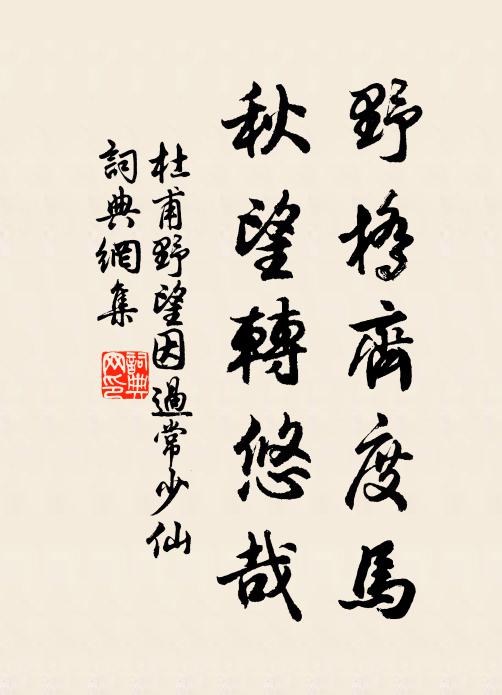 野橋齊度馬
秋望轉悠哉
杜甫野望因過常少仙
詞典網集
詞典網印